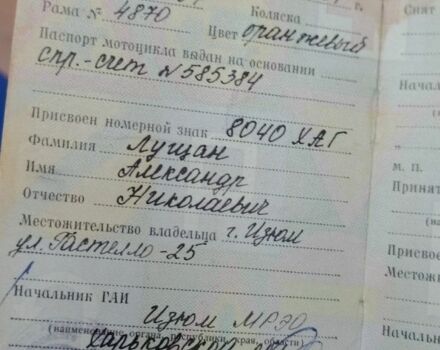 г.
Рама № 4870 Коляска
Цвет оранжевый
Паспорт мотоцикла выдан на основании
спр.-счет №585384
Присвоен номерной знак 8040 ХАГ
Фамилия Лущан
Имя Александр
Отчество Николаевич
Местожительство владельца г. Изюм
ул. Гастелло-25
Начальник ГАИ
Изюм МРЭО
(наименование органа, республики, края, области)
Харьковской
Снят
Начал
„
М. П.
Принят
Присвое
Местожи
Начальн